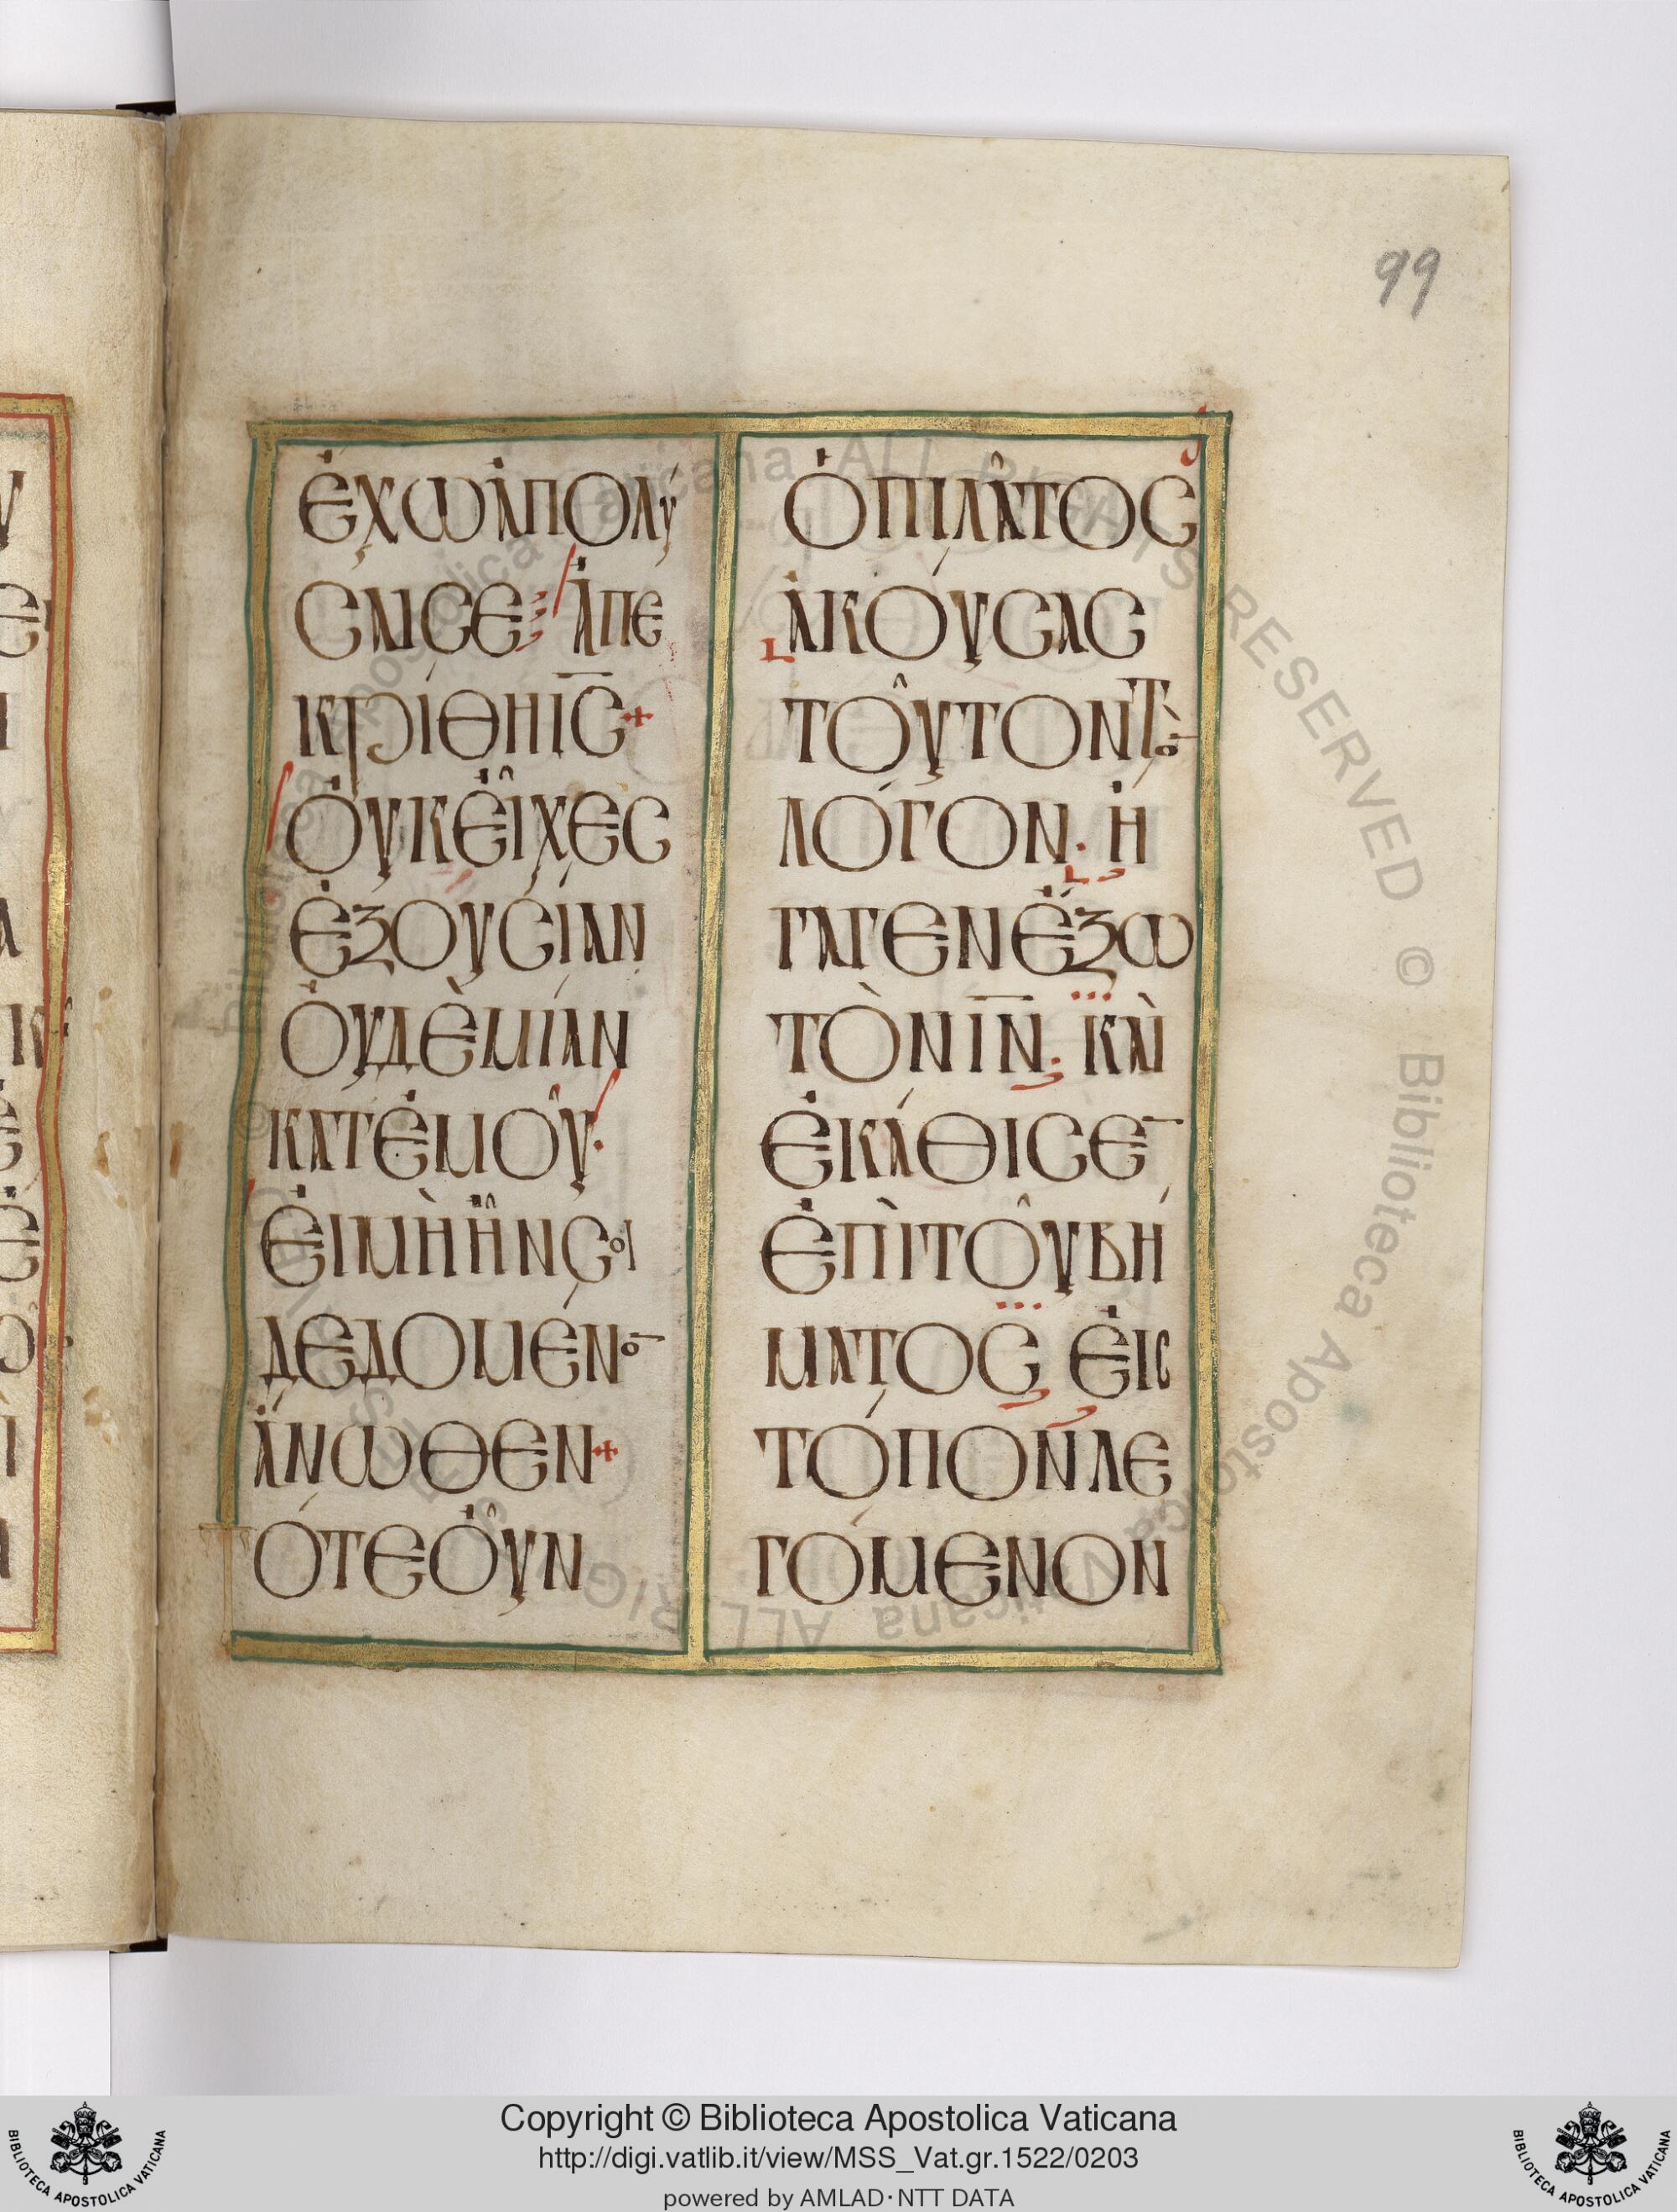 99
ἐχω ἀπολύ
σαι σε· ἀπε
κρίθη ι̅ς̅ +
ὀυκ ἐῖχες
ἐξουσίαν
ὀυδὲ μίαν
κατ ἐμοῦ·
ἐι μὴ ἦν σοι
δεδομένο̅
ἄνωθεν +
ότε ὀῦν
ὁ πιλᾶτος
ἀκούσας
τοῦτον τὸ̅
λόγον· ἠ
γαγεν ἔξω
τὸν ι̅ν̅· και
ἐκάθισε̅
ἐπὶ τοῦ βή
ματος ἐις
τόπον λε
γόμενον
© Biblioteca Apostolica Vaticana ALL RIGHTS RESERVED © Biblioteca Apostolica Vaticana ALL RIGHTS RESERVED
BIBLIOTECA APOSTOLICA VATICANA
Copyright © Biblioteca Apostolica Vaticana
http://digi.vatlib.it/view/MSS_Vat.gr.1522/0203
powered by AMLAD·NTT DATA
BIBLIOTECA APOSTOLICA VATICANA